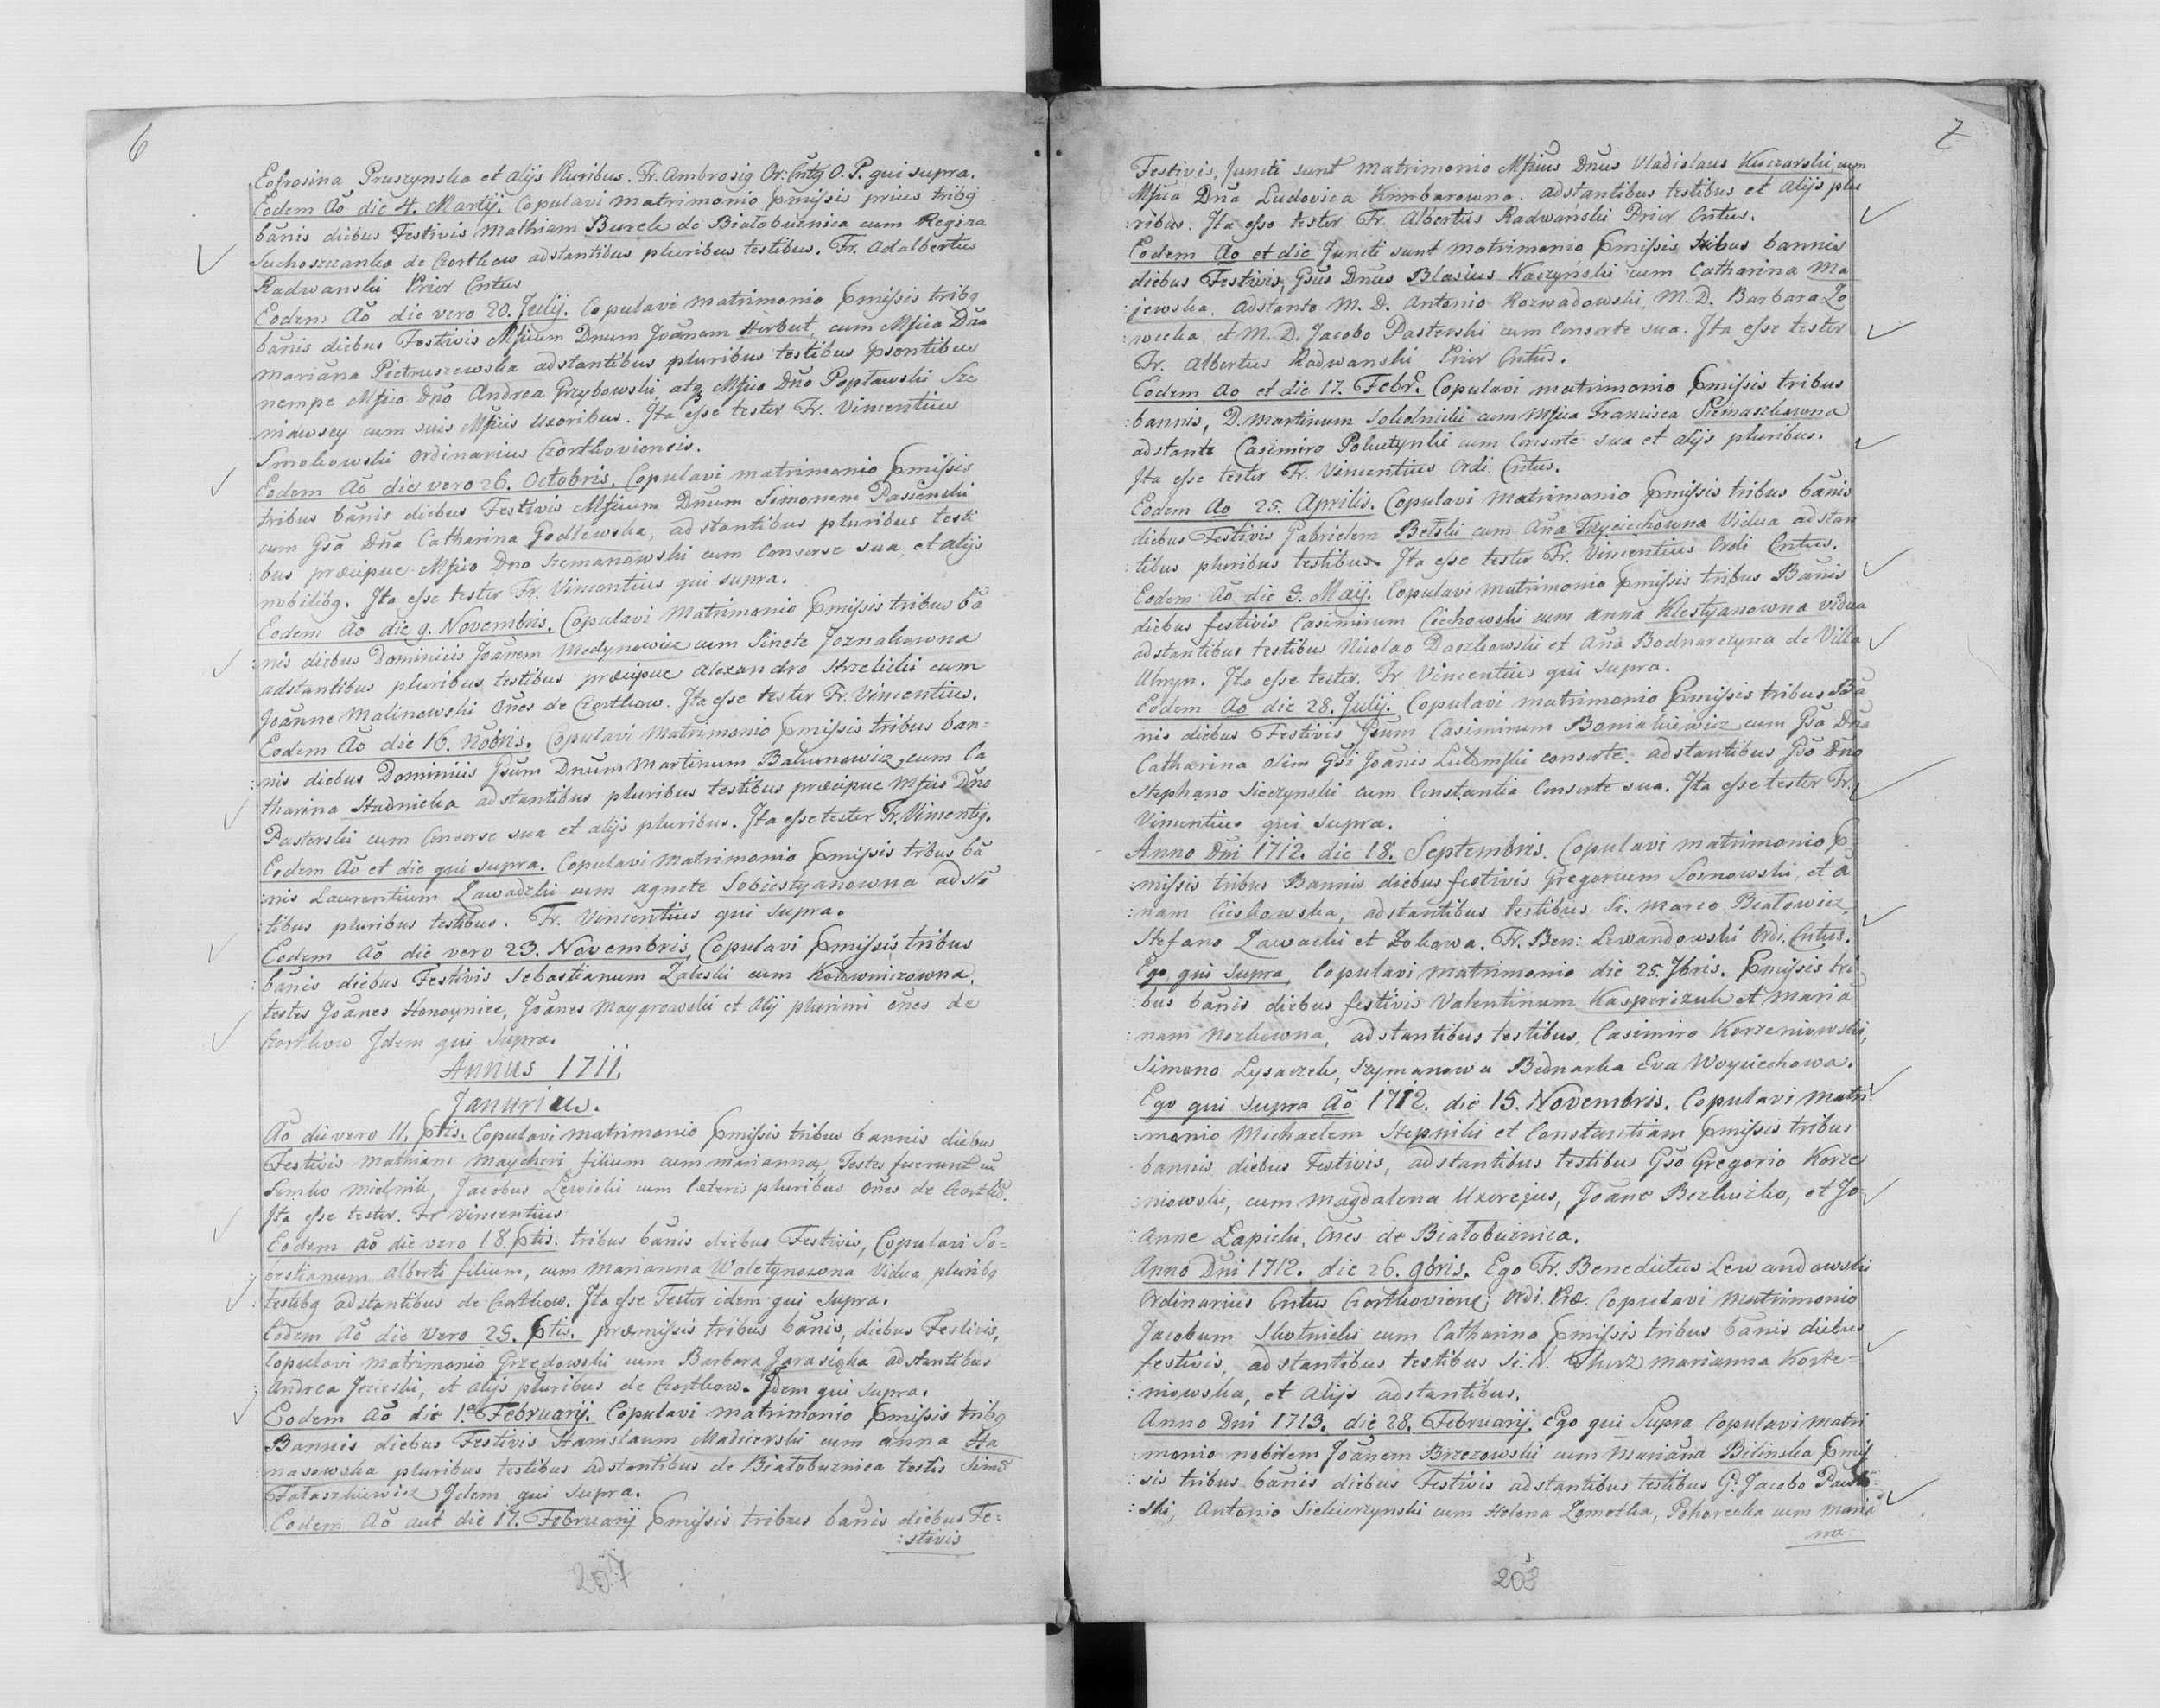 6
Eofrosina Pruszynska et alijs Pluribus. Fr. Ambrosig Or: Cntg O. P. qui supra.
Eodem Ao die 4. Martij. Copulavi matrimonio pmissis prius tribg
banis diebus Festivis Mathiam Burek de Białobuznica cum Regina
Suchoszczanka de Czortkow adstantibus pluribus testibus. Fr. Adalbertus
Radwanski Prior Cntus
Eodem Ao die vero 20. Julij. Copulavi matrimonio pmissis tribg
banis diebus Festivis Mficum Dnum Joanem Hirbut, cum Mfica Dna
Mariana Pietruszewska adstantibus pluribus testibus psentibus
nempe Mfico Dno Andrea Grzybowski, atq Mfico Dno Popławski Sze
niawsey cum suis Mficis Uxoribus. Ita esse testor Fr. Vincentius
Smokowski Ordinarius Czortkoviensis.
Eodem Ao die vero 26. Octobris. Copulavi matrimonio pmissis
tribus banis diebus Festivis Mficum Dnum Simonem Pasienski
cum Gsa Dna Catharina Godlewska, adstantibus pluribus testi
bus præcipue Mfico Dno Szemanowski cum Consorse sua, et alijs
nobilibg. Ita esse testor Fr. Vincentius qui supra.
Eodem Ao die 9. Novembris. Copulavi Matrimonio pmissis tribus ba
:nis diebus Dominicis Joanem Medynowicz cum Sinete Joznakowna
adstantibus pluribus testibus præcipue Alexandro Strzelicki cum
Joanne Malinowski Ones de Czortkow. Ita esse testor Fr. Vincentius.
Eodem Ao die 16. Nobris. Copulavi Matrimonio pmissis tribus ban=
:nis diebus Dominicis Gsum Dnum Martinum Bakunowicz, cum Ca
tharina Stadnicka adstantibus pluribus testibus præcipue Mfico Dno
Pasterski cum Consorse sua et alijs pluribus. Ita esse testor Fr. Vincentig.
Eodem Ao et die qui supra. Copulavi Matrimonio pmissis tribus ba
:nis Laurentium Zawadzki cum Agnete Sobiestyanowna adsta
:tibus pluribus testibus. Fr. Vincentius qui supra.
Eodem Ao die vero 23. Novembris, Copulavi pmissis tribus
banis diebus Festivis Sebastianum Zaleski cum Kotowniczowna,
testes Joanes Honoynicc, Joanes Maygrowski et Alij plurimi ones de
Czortkow Idem qui supra.
Annus 1711.
Janurius.
Ao die vero 11. ptis. Copulavi matrimonio pmissis tribus bannis diebus
Festivis Mathiam Maycheri filium cum Marianna, Testes fuerunt
Semko Mielnik, Jacobus Lewicki cum Cæteris pluribus ones de Czortko.
Ita esse testor. Fr Vincentius
Eodem Ao die vero 18. ptis. tribus banis diebus Festivis, Copulavi Se=
bestianum Alberti filium, cum Marianna Waletynowna Vidua, pluribg
testibg adstantibus de Czortkow. Ita esse Testor idem qui supra.
Eodem Ao die vero 25. ptis. præmissis tribus banis, diebus Festivis,
Copulavi matrimonio Grzedowski cum Barbara Jarasiqka adstantibus
Andrea Jezieski, et alijs pluribus de Czortkow. Idem qui supra.
Eodem Ao die 1.a Februarij. Copulavi matrimonio pmissis tribg
Bannis diebus Festivis Stanislaum Madnerski cum Anna Ha
nasowska pluribus testibus adstantibus de Białobuznica testis Simo
Fataszkiewicz Idem qui supra.
Eodem Ao aut die 17. Februarij pmissis tribus banis diebus Fe=
:stivis
207
7
Festivis, Juncti sunt matrimonio Mficus Dnus Vladislaus Kuczarski, cum
Mfica Dna Ludovica Kimbarowna. adstantibus testibus et alijs plu
ribus. Ita esse testor Fr. Albertus Radwanski Prior Cntus.
Eodem Ao et die Juncti sunt matrimonio pmissis tribus bannis
diebus Festivis, Gsus Dnus Blasius Kaczyński cum Catharina Ma
jewska, Adstante M. D. Antonio Rozwadowski, M. D. Barbara Zo
wecka, et M. D. Jacobo Pasterski cum Consorte sua. Ita esse testor
Fr. Albertus Radwanski Prior Cntus.
Eodem Ao et die 17. Febr. Copulavi matrimonio pmissis tribus
bannis, D. Martinum Sokolnicki cum Mfica Francisca Siemaszkowna
adstante Casimiro Polustynki cum Consorte sua et alijs pluribus.
Ita esse testor Fr. Vincentius Ordi. Cntus.
Eodem Ao 25. Aprilis. Copulavi Matrimonio pmissis tribus banis
diebus Festivis Gabrielem Betski cum Ana Trzyciechowna Vidua adstan
tibus pluribus testibus. Ita esse testor Fr. Vincentius Ordi Cntus.
Eodem Ao die 3. Maij. Copulavi matrimonio pmissis tribus Banis
diebus festivis Casimirum Ciechowski cum Anna Klestyanowna vidua
adstantibus testibus Nicolao Daszkowski et Ana Bodnarczyna de Villa
Almyn. Ita esse testor. Fr Vincentius qui supra.
Eodem Ao die 28. Julij. Copulavi matrimonio pmissis tribus Ba
nis diebus Festivis Gsum Casimirum Boniakiewicz cum Gsa Dna
Catharina olim Gsi Joanis Lutomski consorte. adstantibus Gso Dno
Stephano Sieczynski cum Constantia Consorte sua. Ita esse testor Fr.
Vincentius qui supra.
Anno Dni 1712. die 18. Septembris. Copulavi matrimonio p
:missis tribus Bannis diebus festivis Gregorium Sosnowski, et A
:nam Cieskowska, adstantibus testibus Si. Marco Białowicz,
Stefano Zawacki et Zokowa. Fr. Ben: Lewandowski Ordi. Cntus.
Ego qui supra, Copulavi matrimonio die 25. 7bris. pmissis tri
:bus banis diebus festivis Valentinum Kasperizuk et Maria
:nam Nozkowna, adstantibus testibus, Casimiro Korzeniowski,
Simono Lysaczek, Szymanowa Bednarka Eva Woyciechowa.
Ego qui supra Ao 1712. die 15. Novembris. Copulavi Matri
:monio Michaelem Stepnihi et Constantiam pmissis tribus
bannis diebus Festivis, adstantibus testibus Gso Gregorio Korze
:niowski, cum Magdalena Uxorejus, Joane Bezkuzko, et Jo=
:anne Łapicki, Ones de Białobuznica.
Anno Dni 1712. die 26. 9bris. Ego Fr. Benedictus Lewandowski
Ordinarius Cntus Czortkoviene; Ordi. Præ. Copulavi Matrimonio
Jacobum Skotnicki cum Catharina pmissis tribus banis diebus
festivis, adstantibus testibus Si. N. Therz Marianna Korze=
:niowska, et alijs adstantibus.
Anno Dni 1713. die 28. Februarij. Ego qui supra Copulavi matri
:monio nobilem Joanem Brzezowski cum Mariana Bilinska pmis
:sis tribus banis diebus Festivis adstantibus testibus G. Jacobo
:ski, Antonio Siekierzynski cum Helena Zamotka, Pohorecka cum Maria
na
208